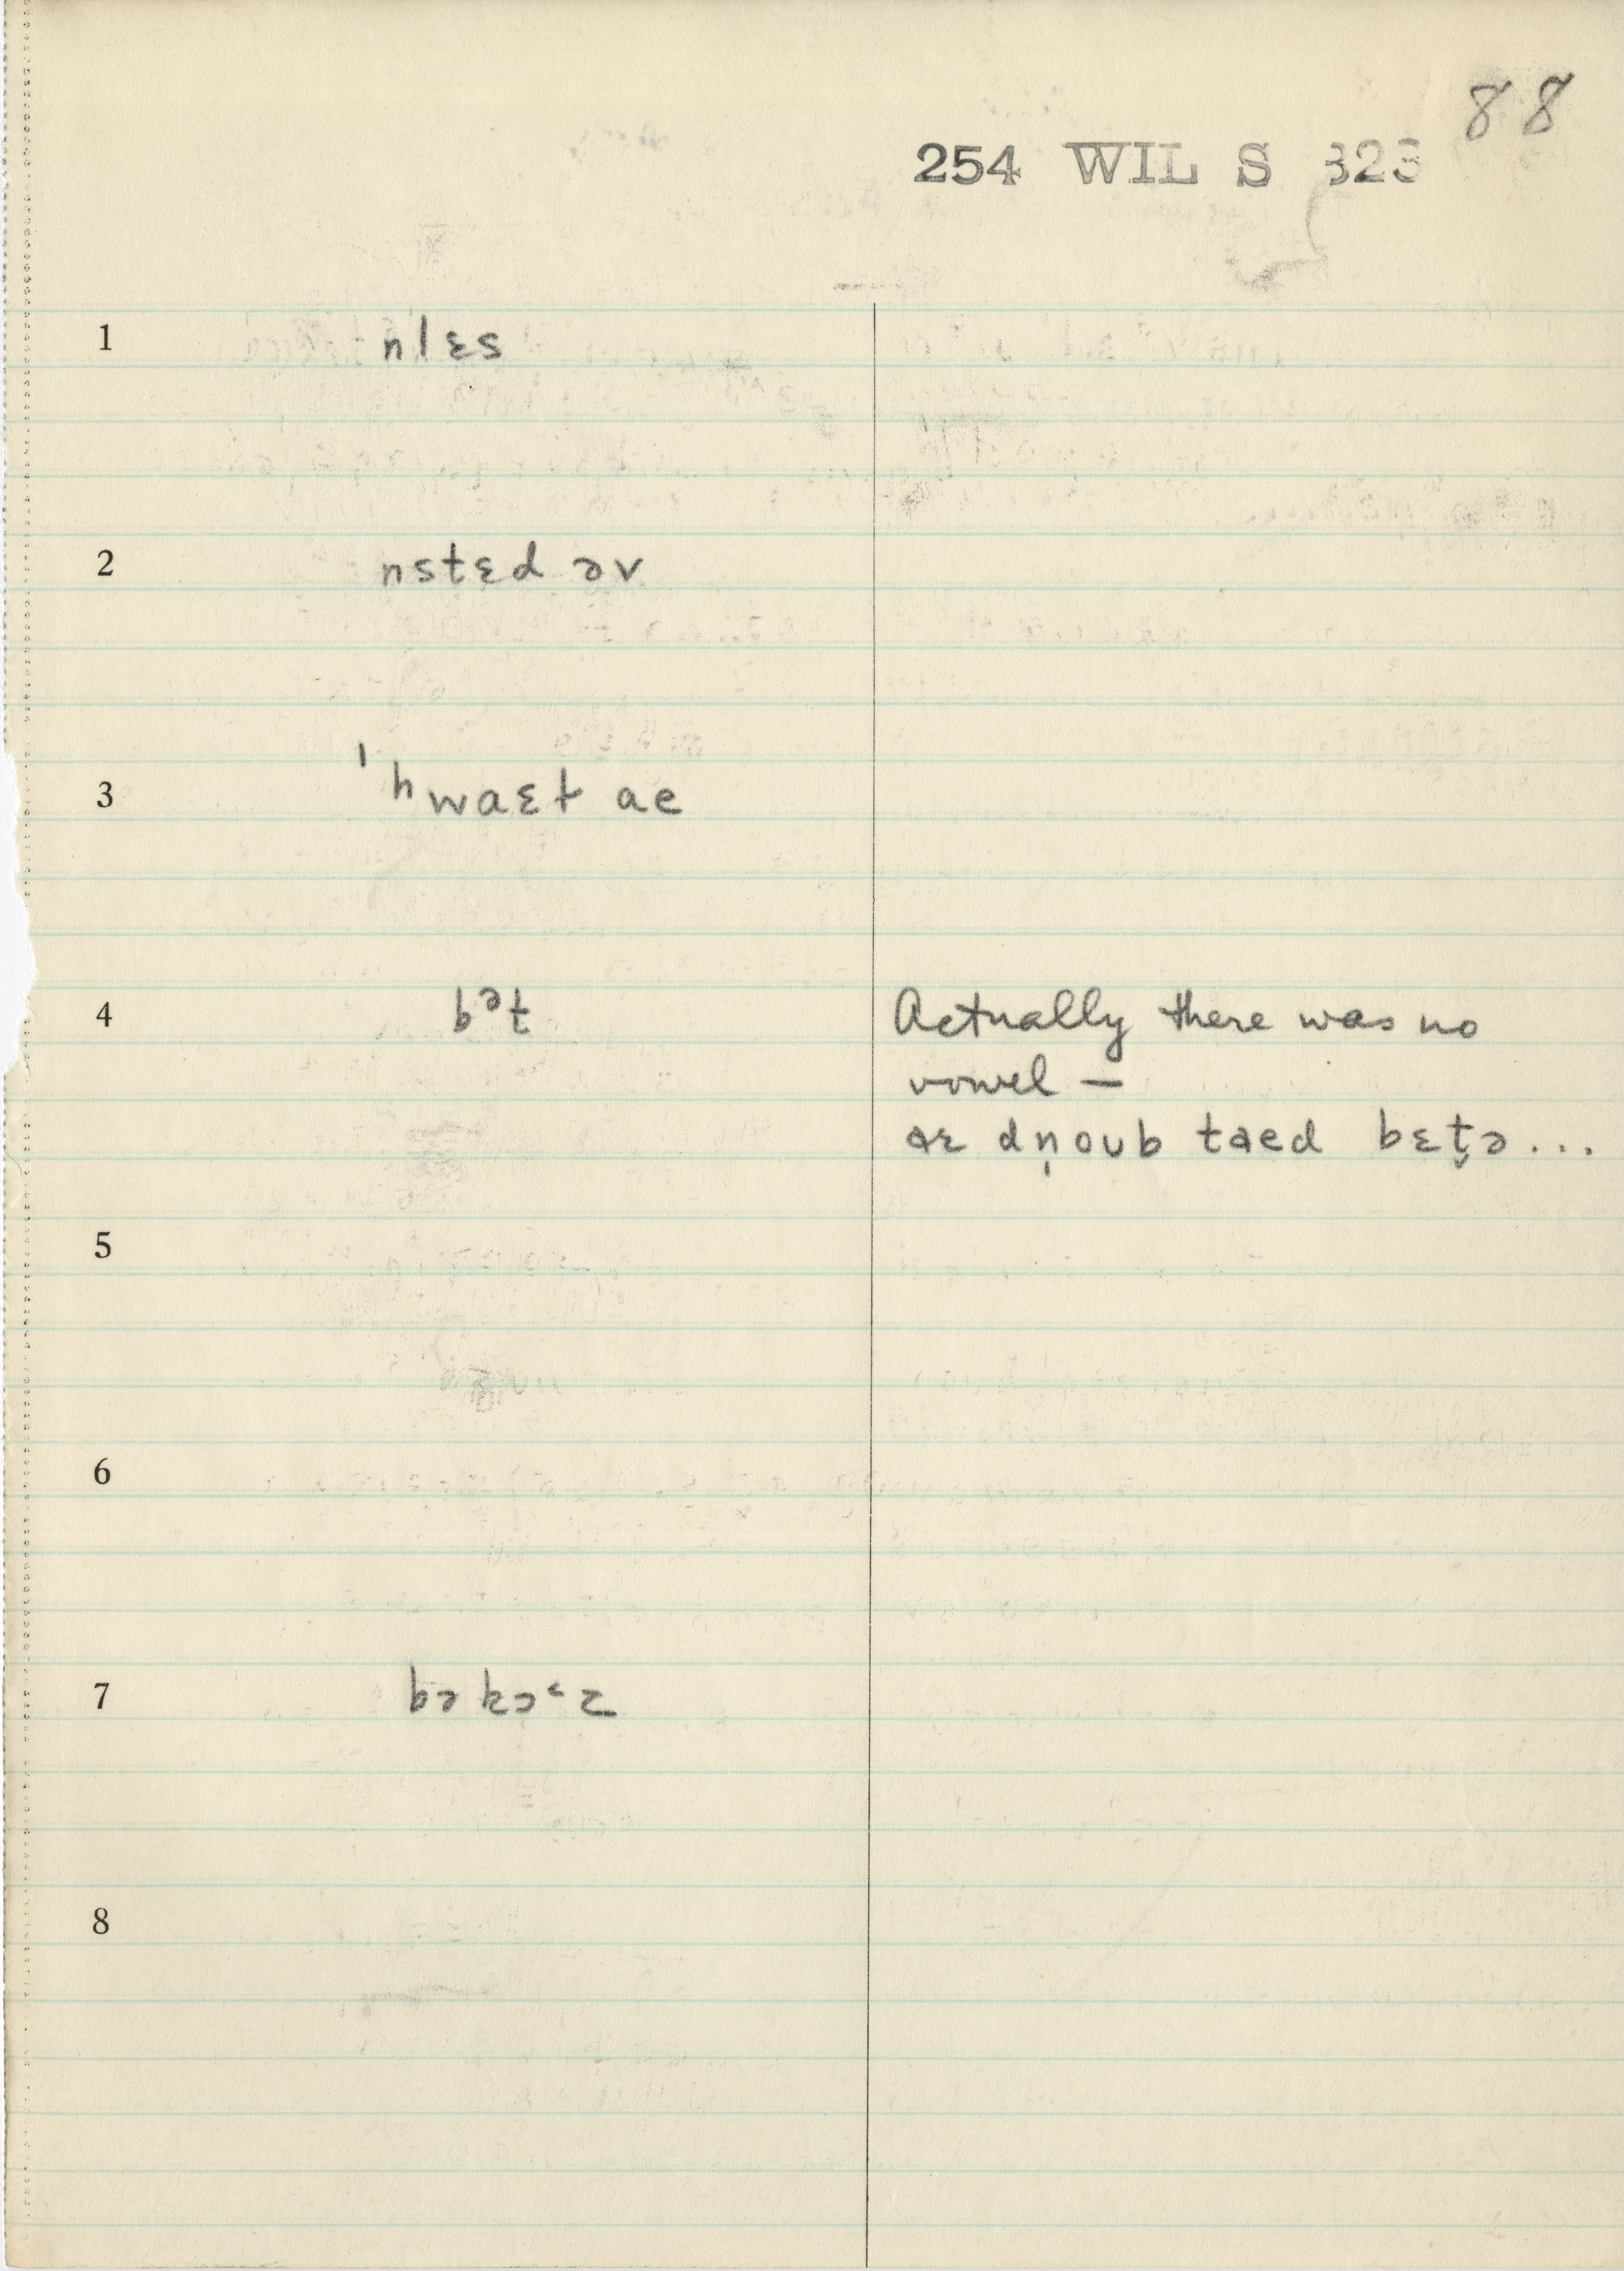 88
254 WIL S 323
1 nlɛs
2 nstɛd əv
3 ˈhwaɛt ae
4 bᵊt Actually there was no
vowel —
aɛ dn̩oub taed bɛt̬ə...
5
6
7 bəkɔ˂z
8